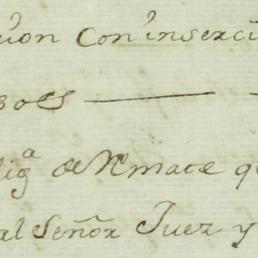 cion con inserci
lig.ª de Remate q
al Señor Juez y